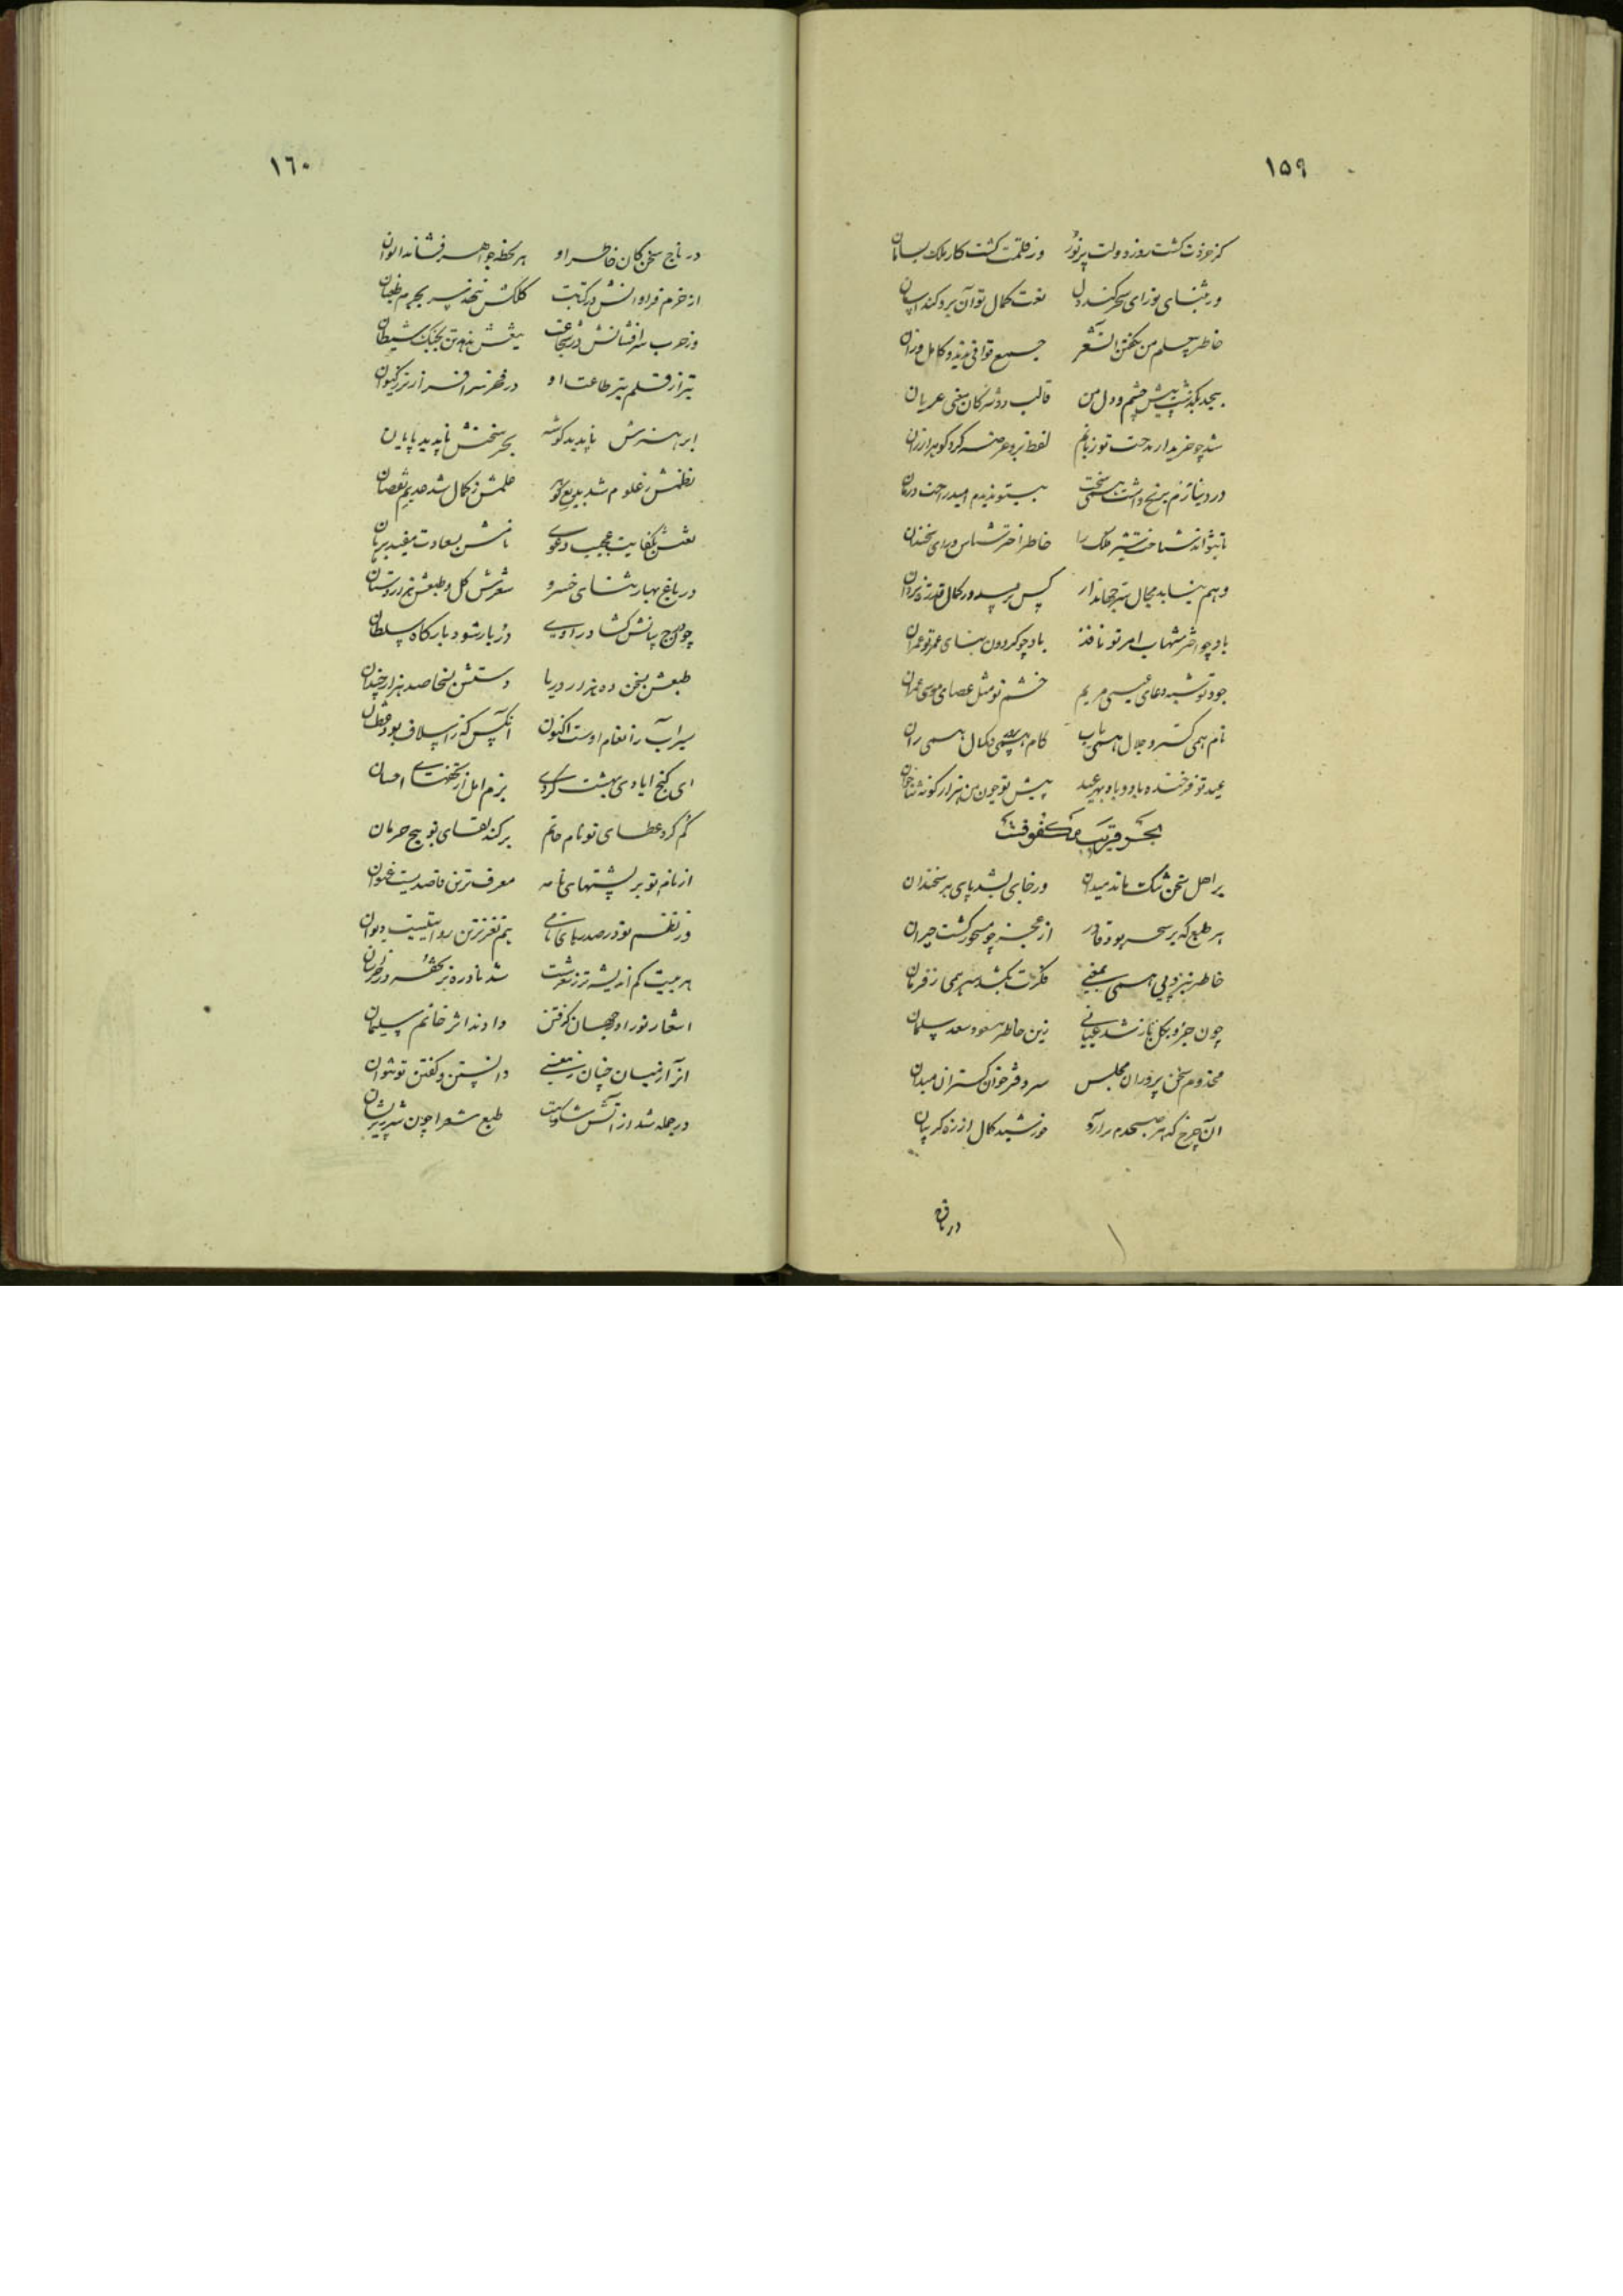 ۱۵۹
کز خردت گشت روز دولت پرنور وز قلمت گشت کار ملک بسامان
ور بثنای تو رای سحر کند دل نعت کمال تو آن برو کند آسان
خاطر چو قلم من بگفتن شعر جمع قوافی مدید و کامل وزان
بیحد بگذشت پیش چشم و دل من قالب دوشیزگان معنی عریان
شد چو خریدار مدحت تو زبانم لفظ برو عرضه کرد گوهر ارزان
در دنیا برنج داشت همی سخت بیتو ندیدم امید راحت درمان
تا بتواند شناخت سیر فلک را خاطر اختر شناس و رای سخندان
وهم نیابد مجال سر جهاندار کس نرسد در کمال قدرت یزدان
باد چو اختر شهاب امر تو نافذ باد چو گردون بنای عمر تو عمران
جود تو شبه دعای عیسی مریم خشم تو مثل عصای موسی عمران
نام همی گستر و جلال همی یاب کام همی و کمال همی ران
عید تو فرخنده باد و باد بهر عید پیش تو چون من هزار گونه ثناخوان
بحر قریب مکفوفت
بر اهل سخن تنگ ماند میدان ور جای بشد پای هر سخندان
هر طبع که بر سحر بود قادر از عجز چو مسحور گشت حیران
خاطر نبرد پی همی بمعنی فکرت بکشد سر همی ز فرمان
چون جزو بکل باز شد عیانی زین خاطر مسعود سعد سلمان
مخدوم سخن پروران مجلس سر دفتر خوان گستران میدان
آن چرخ که هر صبحدم برآرد خورشید کمال از زه گریبان
در تاج
۱٦۰
در تاج سخن کان خاطر او هر لحظه جواهر فشاند الوان
از حزم فراوانش در کتابت کلکش ننهد سر بجرم طغیان
وز حرب سرافشانش در شجاعت تیغش ندهد تن بجنگ شیطان
تیر از قلم تیر طاعت او در فخر سرافراز تر ز کیوان
ابر هنرش ناپدید گوشه بحر سخنش ناپدید پایان
نظمش ز علوم شد بدیع علمش ز کمال شد عدیم نقصان
لفظش بکفایت عجیب دعوی نامش بسعادت مفید برهان
در باغ بهار ثنای خسرو شعرش گل و طبعش هزاردستان
چون درج بیانش گشاد راوی دربار شود بارگاه سلطان
طبعش بسخن ده هزار دریا دستش بسخا صد هزار چندان
سیراب ز انعام اوست اکنون آنکس کز اسلاف بود عطشان
ای کنج ایادی بهشت کردی بزم امل از تحفهای احسان
گم کرد عطای تو نام حاتم برکند لقای تو بیخ حرمان
از نام تو بر پشتهای نامه معروف ترین قاصدیست عنوان
وز نظم تو در صدرهای نامی هم نغزترین راویست دیوان
هر بیت کم اندیشه تو زشت شد نادره تر تحفه در خراسان
اشعار تو را در جهان گرفتن دادند اثر خاتم سلیمان
از آز نیسان چنان ز معنی دانستن و گفتن تو نتوان
در جمله شد از آتش شکوهت طبع شعرا چون شرر پریشان